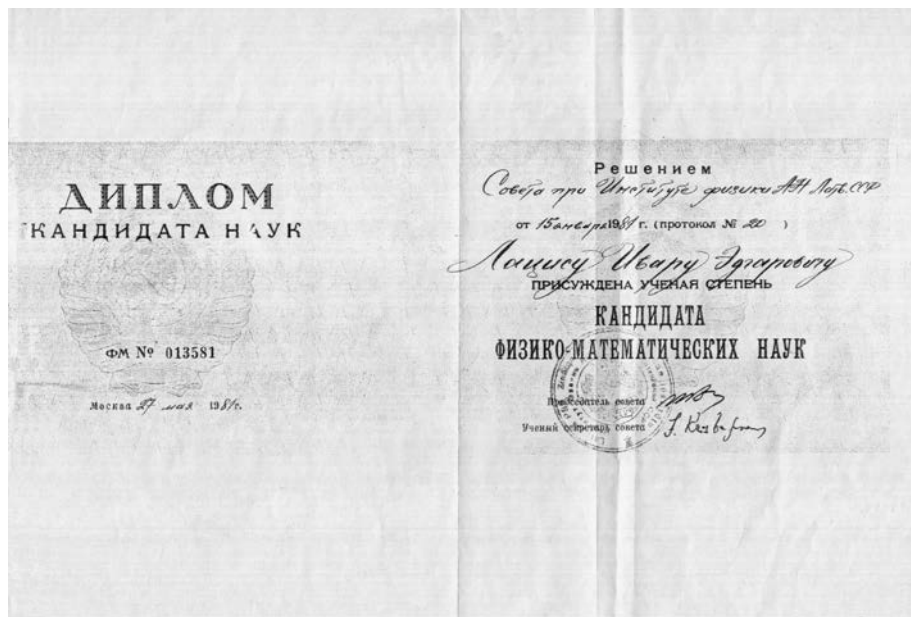 ДИПЛОМ
КАНДИДАТА НАУК
ФМ № 013581
Москва 27 мая 1981г.
Решением
Совета при Институте физики АН Латв.ССР
от 15 января 1981 г. (протокол № 20 )
Лацису Ивару Эдгаровичу
ПРИСУЖДЕНА УЧЕНАЯ СТЕПЕНЬ
КАНДИДАТА
ФИЗИКО-МАТЕМАТИЧЕСКИХ НАУК
Председатель совета
Ученый секретарь совета